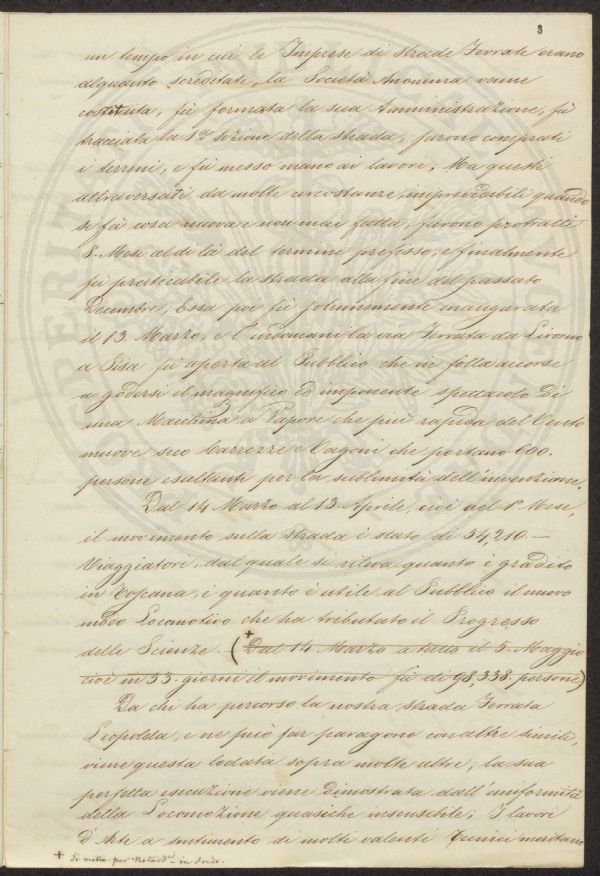 3
un tempo in cui le Imprese di strade Ferrate erano
alquanto screditate, la Società Anonima venne
costituita, fu formata la sua Amministrazione, fu
tracciata la 1ª Sezione della strada, furono comprati
i terreni, e fu messo mano ai lavori; Ma questi
attraversati da molte circostanze, imprevedibili quando
si fà cosa nuova e non mai fatta, furono protratti
8. Mesi al di là del termine prefisso, e finalmente
fu praticabile la strada alla fine del passato
Decembre; Essa poi fu solennemente inaugurata
il 13. Marzo, e l'indomani la via Ferrata da Livorno
a Pisa fu aperta al Pubblico che in folla accorse
a godersi il magnifico ed imponente spettacolo di
una Macchina a Vapore che più rapida del Vento
muove seco Carrozze e Vagoni che portano 600.
persone esaltanti per la sublimità dell'invenzione.
Dal 14 Marzo al 13. Aprile, cioè nel 1º Mese,
il movimento sulla strada è stato di 54,210.—
Viaggiatori, dal quale si rileva quanto è gradito
in Toscana, e quanto è utile al Pubblico il nuovo
modo Locomotivo che ha tributato il Progresso
delle Scienze. (+ Dal 14 Marzo a tutto il 5. Maggio
cioè in 53. giorni il movimento fu di 98,338. persone)
Da chi ha percorso la nostra Strada Ferrata
Leopolda, e ne può far paragone con altre simili,
viene questa lodata sopra molte altre; la sua
perfetta esecuzione viene dimostrata dall'uniformità
della Locomozione quasiche insensibile; I lavori
d'Arte a sentimento di molti valenti Tecnici meritano
+ Si metta per Nota in fondo.
PROSPERIT